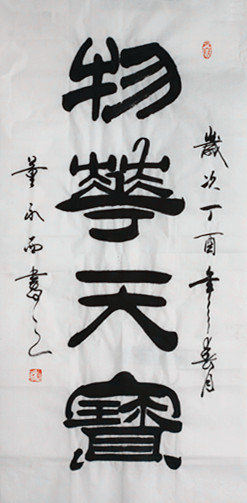 歲次丁酉年春月
物華天寶
董永西書之